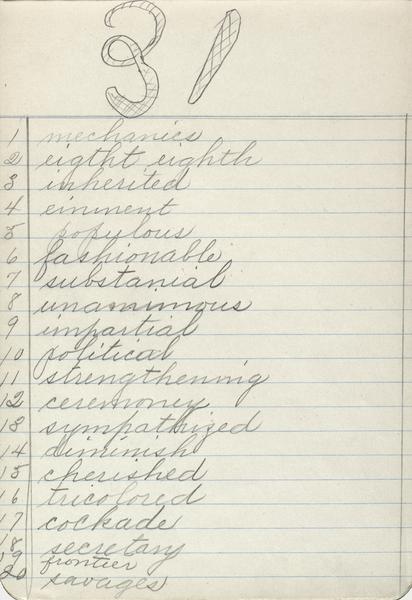 31
1 mechanics
2 eigtht eighth
3 inherited
4 einment
5 populous
6 fashionable
7 substanial
8 unamimous
9 impartial
10 political
11 strengthening
12 ceremoney
13 sympathized
14 diminish
15 cherished
16 tricolored
17 cockade
18 secretary
19 frontier
20 savages